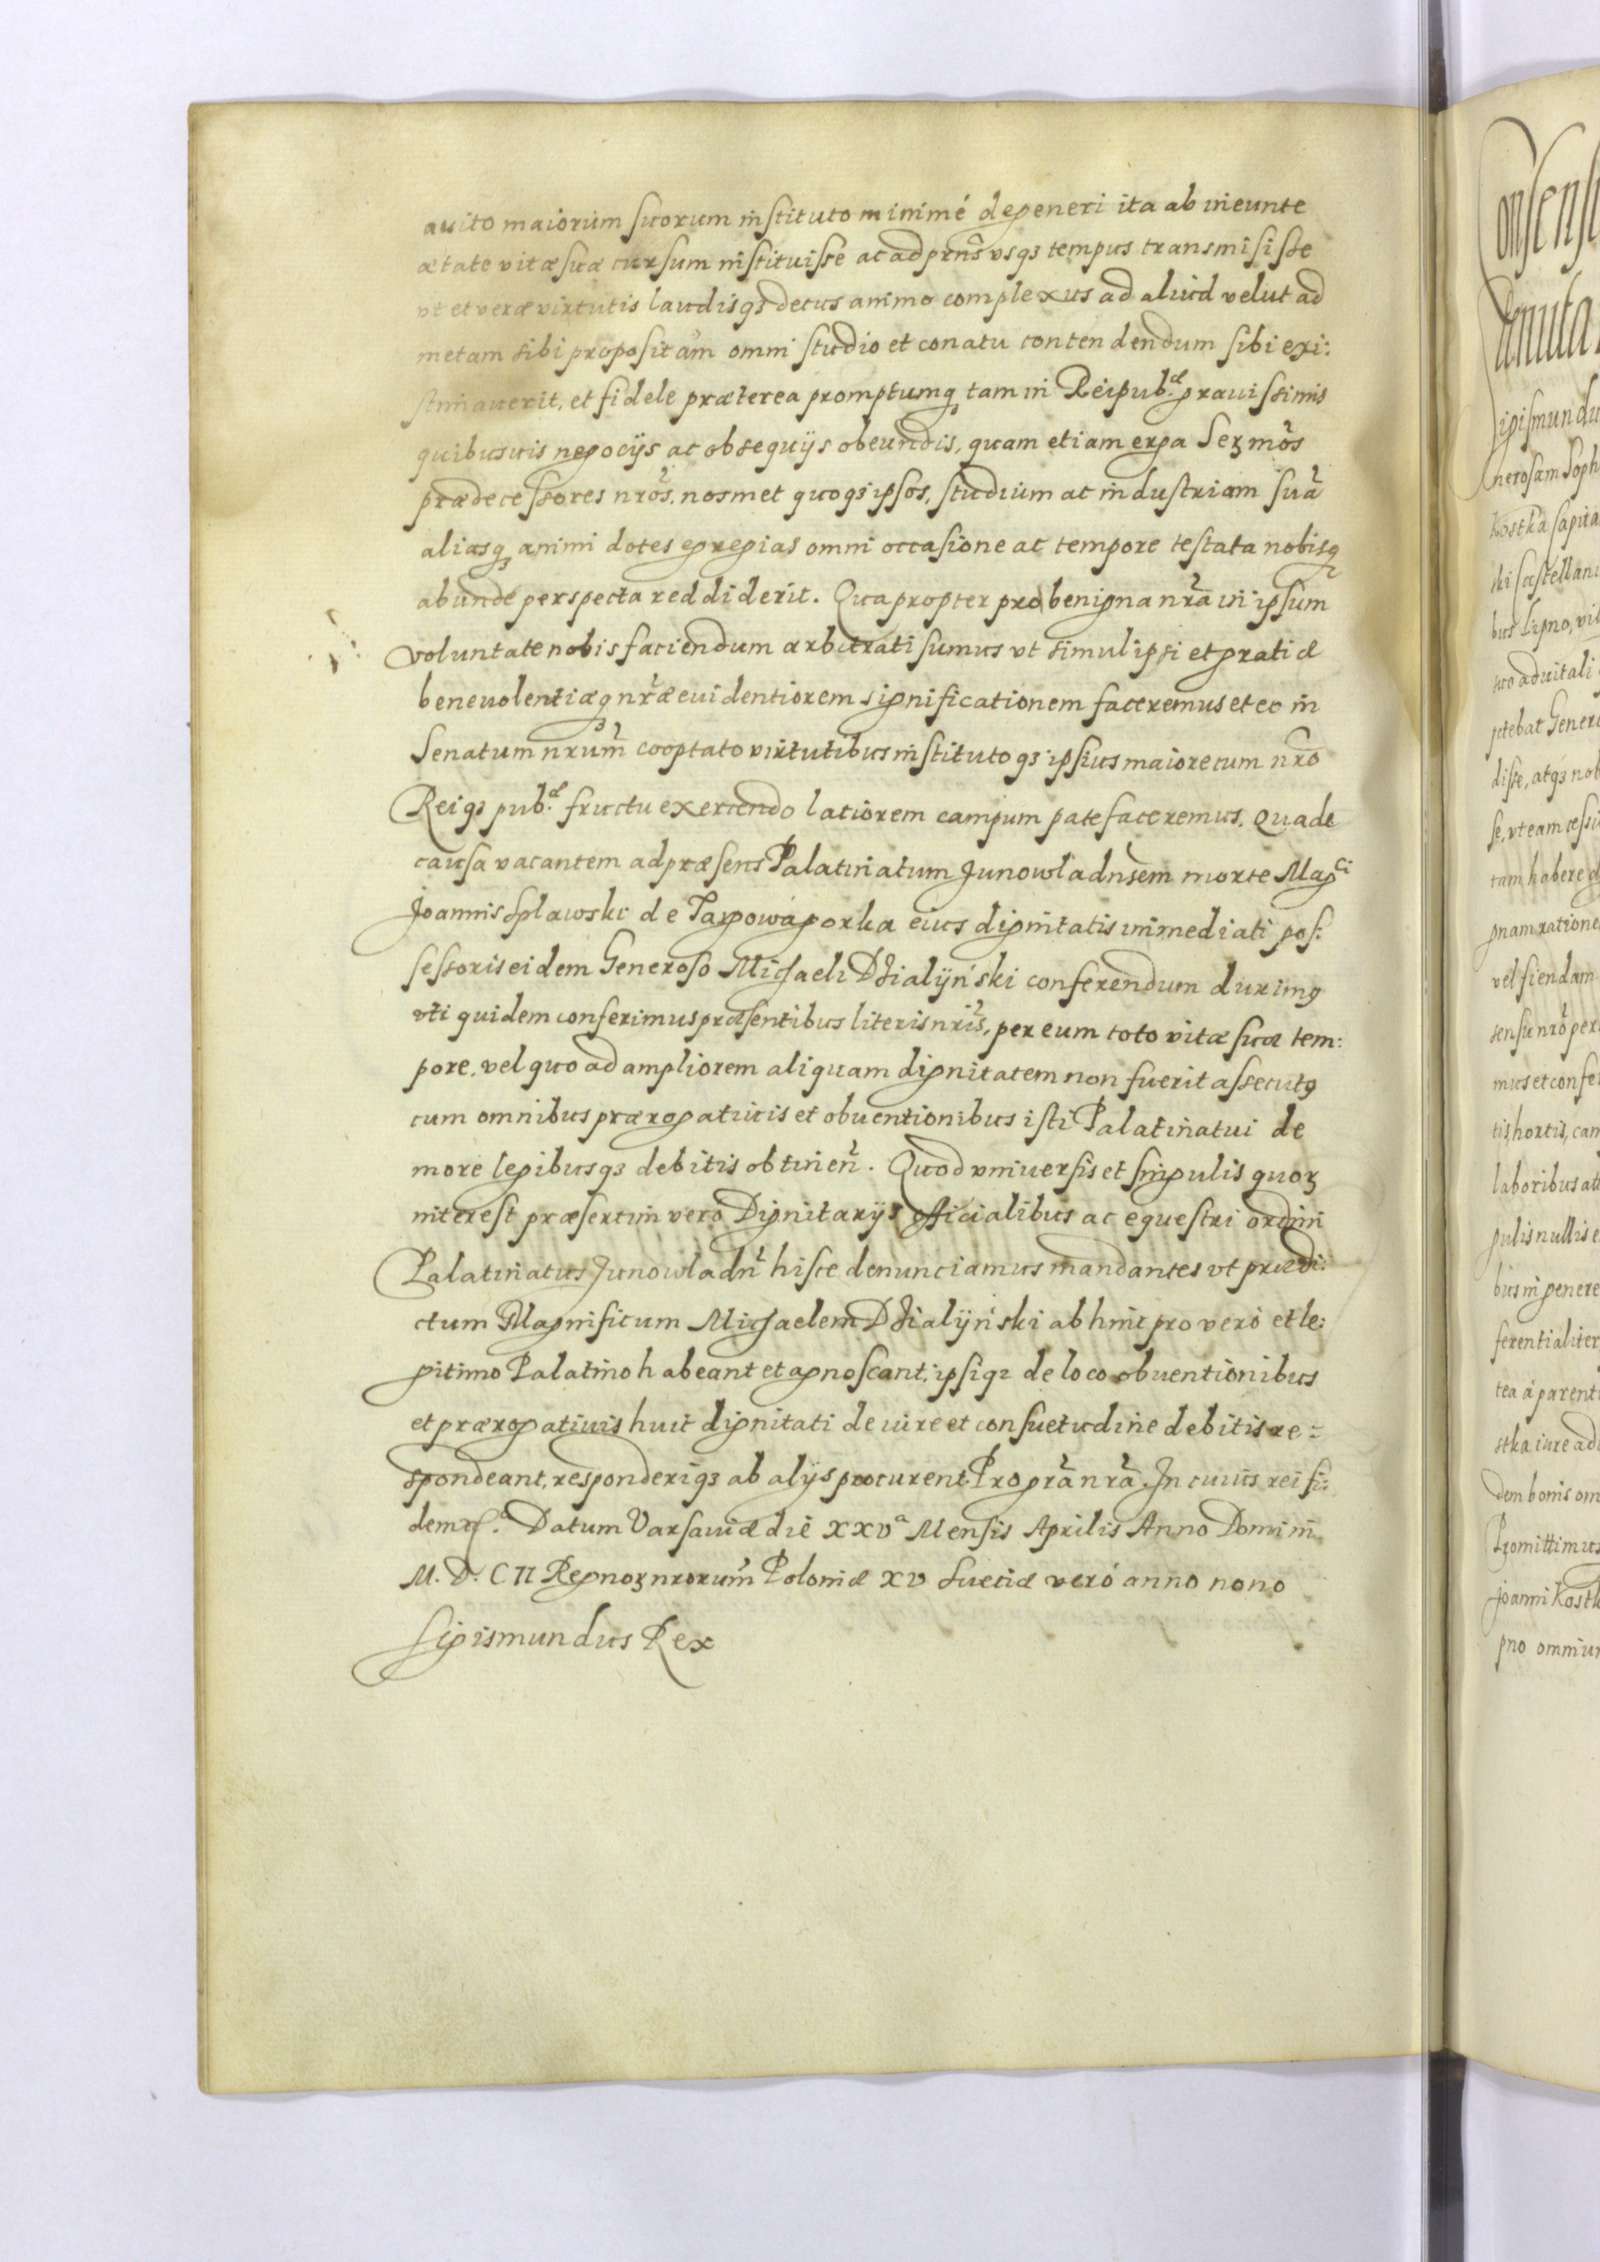 auito maiorum suorum instituto minimé degeneri ita ab ineunte
ætate vitæ suæ cursum instituisse ac ad prns̃ vsqȝ tempus transmisisse
vt et veræ virtutis laudisqȝ decus animo complexus ad aliud velut ad
metam sibi propositam omni studio et conatu contendendum sibi exi:
stimauerit, et fidele præterea promptumqȝ tam in Reipub.æ grauissimis
quibusuis negocijs ac obsequijs obeundis, quam etiam erga Serꝫmos
prædecessores nros̃, nosmet quoqȝ ipsos, studium ac industriam suã
aliasqȝ animi dotes egregias omni occasione ac tempore testata nobisqȝ
abundé perspecta reddiderit. Quapropter pro benigna nr̃a in ipsum
voluntate nobis faciendum arbitrati sumus vt simul ipsi et gratiæ
beneuolentiæqȝ nr̃æ euidentiorem significationem faceremus et eo in
Senatum nrum̃ cooptato virtutibus institutoqȝ ipsius maiore cum nrõ
Reiqȝ pub.æ fructu exercendo latiorem campum patefaceremus. Qua de
causa vacantem ad præsens Palatinatum Junowladnsem̃ morte Mag.ci
Joannis Splawski de Targowagorka eius dignitatis immediati pos:
sessoris eidem Generoso Michaeli Dzialijński conferendum duximꝯ
vti quidem conferimus præsentibus literis nris̃, per eum toto vitæ suæ tem:
pore, vel quo ad ampliorem aliquam dignitatem non fuerit assecutꝯ
cum omnibus prærogatiuis et obuentionibus isti Palatinatui de
more legibusqȝ debitis obtineñ. Quod vniuersis et singulis quoꝝ
interest præsertim vero Dignitarijs officialibus ac equestri ordini
Palatinatus Junowladñ hisce denunciamus mandantes vt prædi:
ctum Magnificum Michaelem Dzialijński ab hinc pro vero et le:
gitimo Palatino habeant et agnoscant, ipsiqȝ de loco obuentionibus
et prærogatiuis huic dignitati de iure et consuetudine debitis re:
spondeant, responderiqȝ ab alijs procurent Pro grã nrã. In cuius rei fi:
dem etc. Datum Varsauiæ die XXVa Mensis Aprilis Anno Domini
M. D. CII Regnoꝝ nrorum̃ Poloniæ XV Sueciæ veró anno nono
Sigismundus Rex